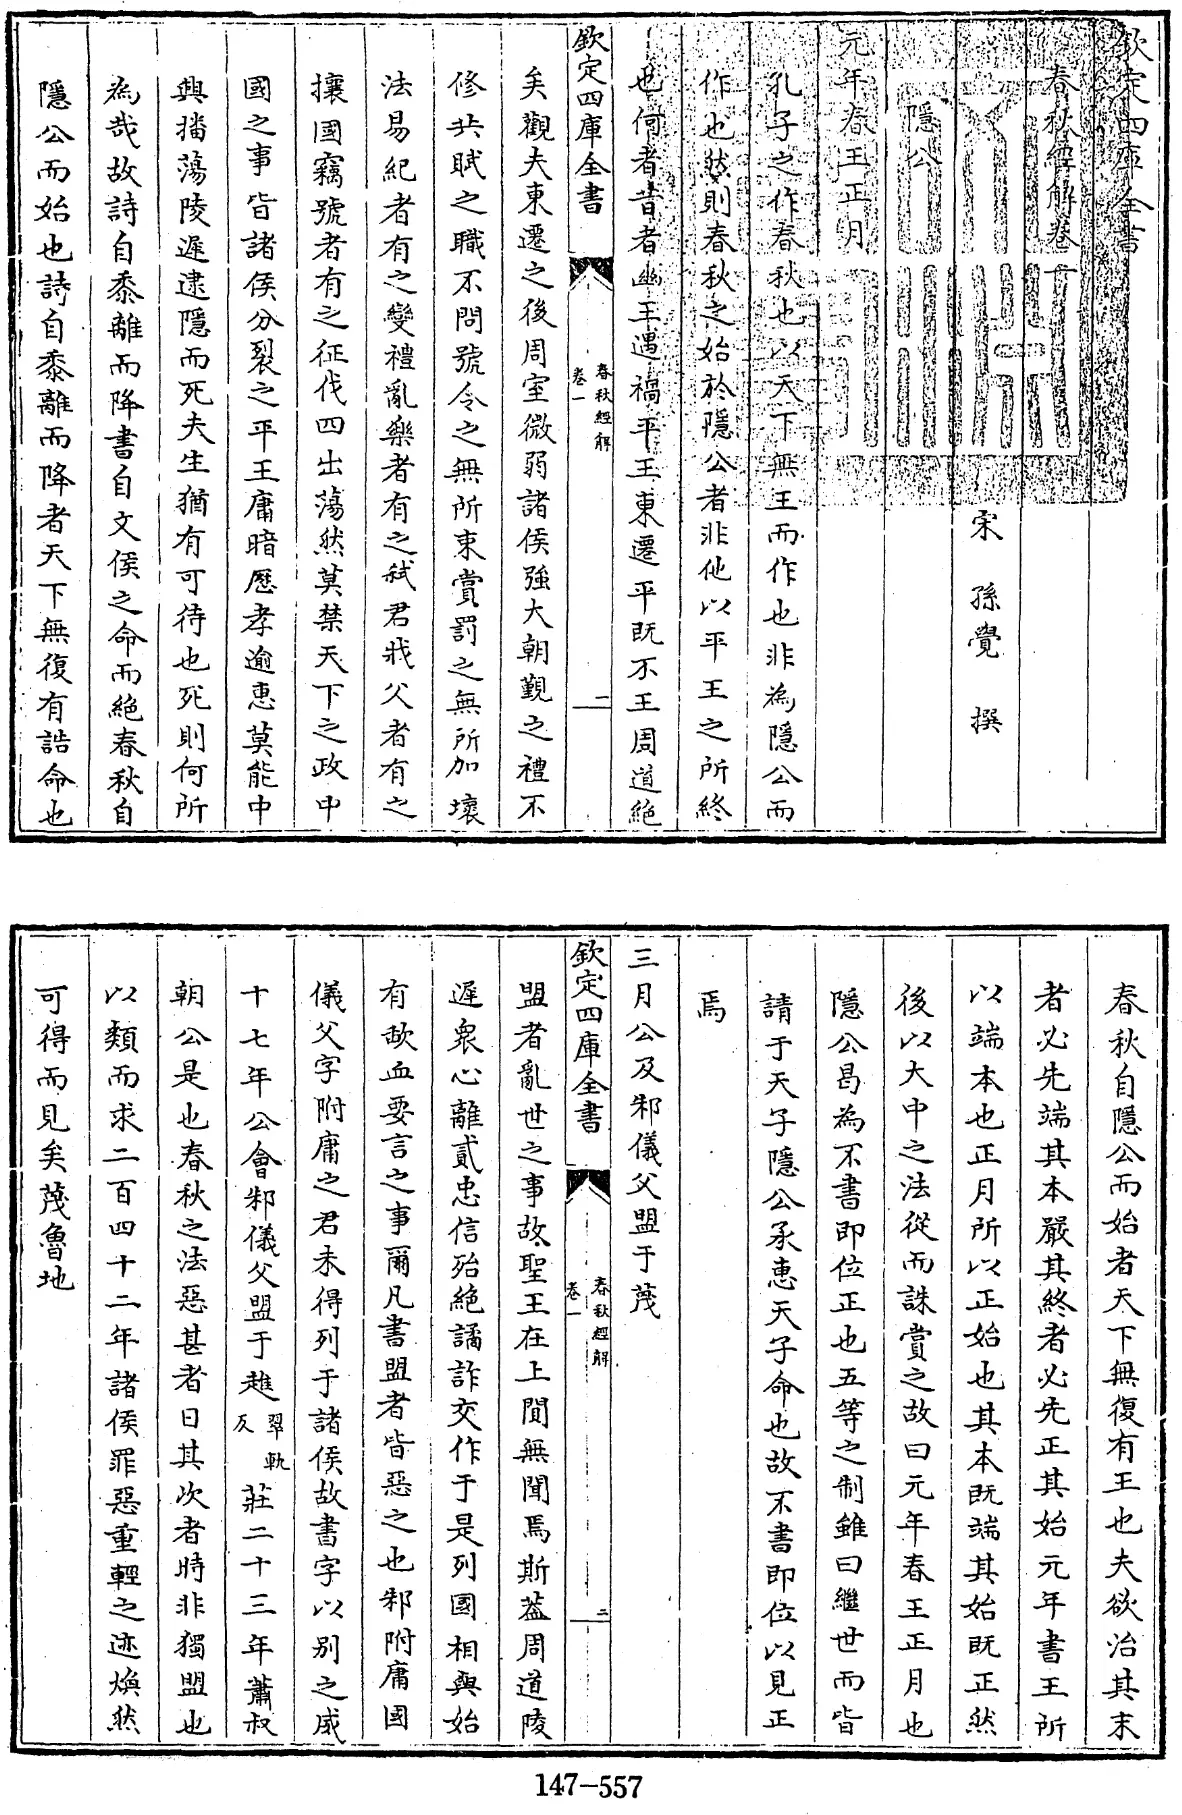 欽定四庫全書
春秋經解卷一
宋 孫覺 撰
隱公
元年春王正月
孔子之作春秋也以天下無王而作也非為隱公而
作也然則春秋之始於隱公者非他以平王之所終
也何者昔者幽王遇禍平王東遷平既不王周道絶
欽定四庫全書
春秋經解
卷一
一
矣觀夫東遷之後周室微弱諸侯強大朝覲之禮不
修共賦之職不問號令之無所束賞罰之無所加壞
法易紀者有之變禮亂樂者有之弑君戕父者有之
攘國竊號者有之征伐四出蕩然莫禁天下之政中
國之事皆諸侯分裂之平王庸暗歷孝逾惠莫能中
興播蕩陵遲逮隱而死夫生猶有可待也死則何所
為哉故詩自黍離而降書自文侯之命而絶春秋自
隱公而始也詩自黍離而降者天下無復有誥命也
春秋自隱公而始者天下無復有王也夫欲治其末
者必先端其本嚴其終者必先正其始元年書王所
以端本也正月所以正始也其本既端其始既正然
後以大中之法從而誅賞之故曰元年春王正月也
隱公曷為不書即位正也五等之制雖曰繼世而皆
請于天子隱公承惠天子命也故不書即位以見正
焉
三月公及邾儀父盟于蔑
欽定四庫全書
春秋經解
卷一
二
盟者亂世之事故聖王在上閴無聞焉斯葢周道陵
遲衆心離貳忠信殆絶譎詐交作于是列國相與始
有歃血要言之事爾凡書盟者皆惡之也邾附庸國
儀父字附庸之君未得列于諸侯故書字以别之威
十七年公會邾儀父盟于趡翠軌反莊二十三年蕭叔
朝公是也春秋之法惡甚者日其次者時非獨盟也
以類而求二百四十二年諸侯罪惡重輕之迹煥然
可得而見矣蔑魯地
147-557